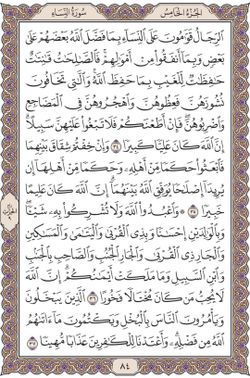 الجزء الخامس
سورة النساء
الرِّجَالُ قَوَّامُونَ عَلَى النِّسَاءِ بِمَا فَضَّلَ اللَّهُ بَعْضَهُمْ عَلَىٰ
بَعْضٍ وَبِمَا أَنفَقُوا مِنْ أَمْوَالِهِمْ فَالصَّالِحَاتُ قَانِتَاتٌ
حَافِظَاتٌ لِّلْغَيْبِ بِمَا حَفِظَ اللَّهُ وَاللَّاتِي تَخَافُونَ
نُشُوزَهُنَّ فَعِظُوهُنَّ وَاهْجُرُوهُنَّ فِي الْمَضَاجِعِ
وَاضْرِبُوهُنَّ فَإِنْ أَطَعْنَكُمْ فَلَا تَبْغُوا عَلَيْهِنَّ سَبِيلًا
إِنَّ اللَّهَ كَانَ عَلِيًّا كَبِيرًا ٣٤ وَإِنْ خِفْتُمْ شِقَاقَ بَيْنِهِمَا
فَابْعَثُوا حَكَمًا مِّنْ أَهْلِهِ وَحَكَمًا مِّنْ أَهْلِهَا إِن
يُرِيدَا إِصْلَاحًا يُوَفِّقِ اللَّهُ بَيْنَهُمَا إِنَّ اللَّهَ كَانَ عَلِيمًا
خَبِيرًا ٣٥ وَاعْبُدُوا اللَّهَ وَلَا تُشْرِكُوا بِهِ شَيْئًا
وَبِالْوَالِدَيْنِ إِحْسَانًا وَبِذِي الْقُرْبَىٰ وَالْيَتَامَىٰ وَالْمَسَاكِينِ
وَالْجَارِ ذِي الْقُرْبَىٰ وَالْجَارِ الْجُنُبِ وَالصَّاحِبِ بِالْجَنبِ
وَابْنِ السَّبِيلِ وَمَا مَلَكَتْ أَيْمَانُكُمْ إِنَّ اللَّهَ
لَا يُحِبُّ مَن كَانَ مُخْتَالًا فَخُورًا ٣٦ الَّذِينَ يَبْخَلُونَ
وَيَأْمُرُونَ النَّاسَ بِالْبُخْلِ وَيَكْتُمُونَ مَا آتَاهُمُ
اللَّهُ مِن فَضْلِهِ وَأَعْتَدْنَا لِلْكَافِرِينَ عَذَابًا مُّهِينًا ٣٧
٨٤